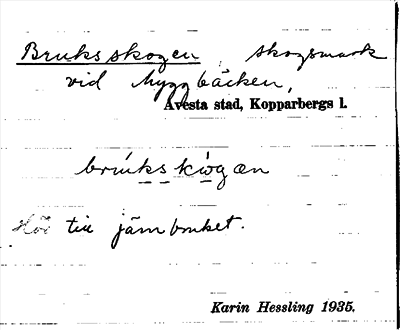 Bruksskogen, skogsmark
vid Myggbäcken,
Avesta stad, Kopparbergs l.
brukskiogæn
Hör till järnbruket.
Karin Hessling 1935.